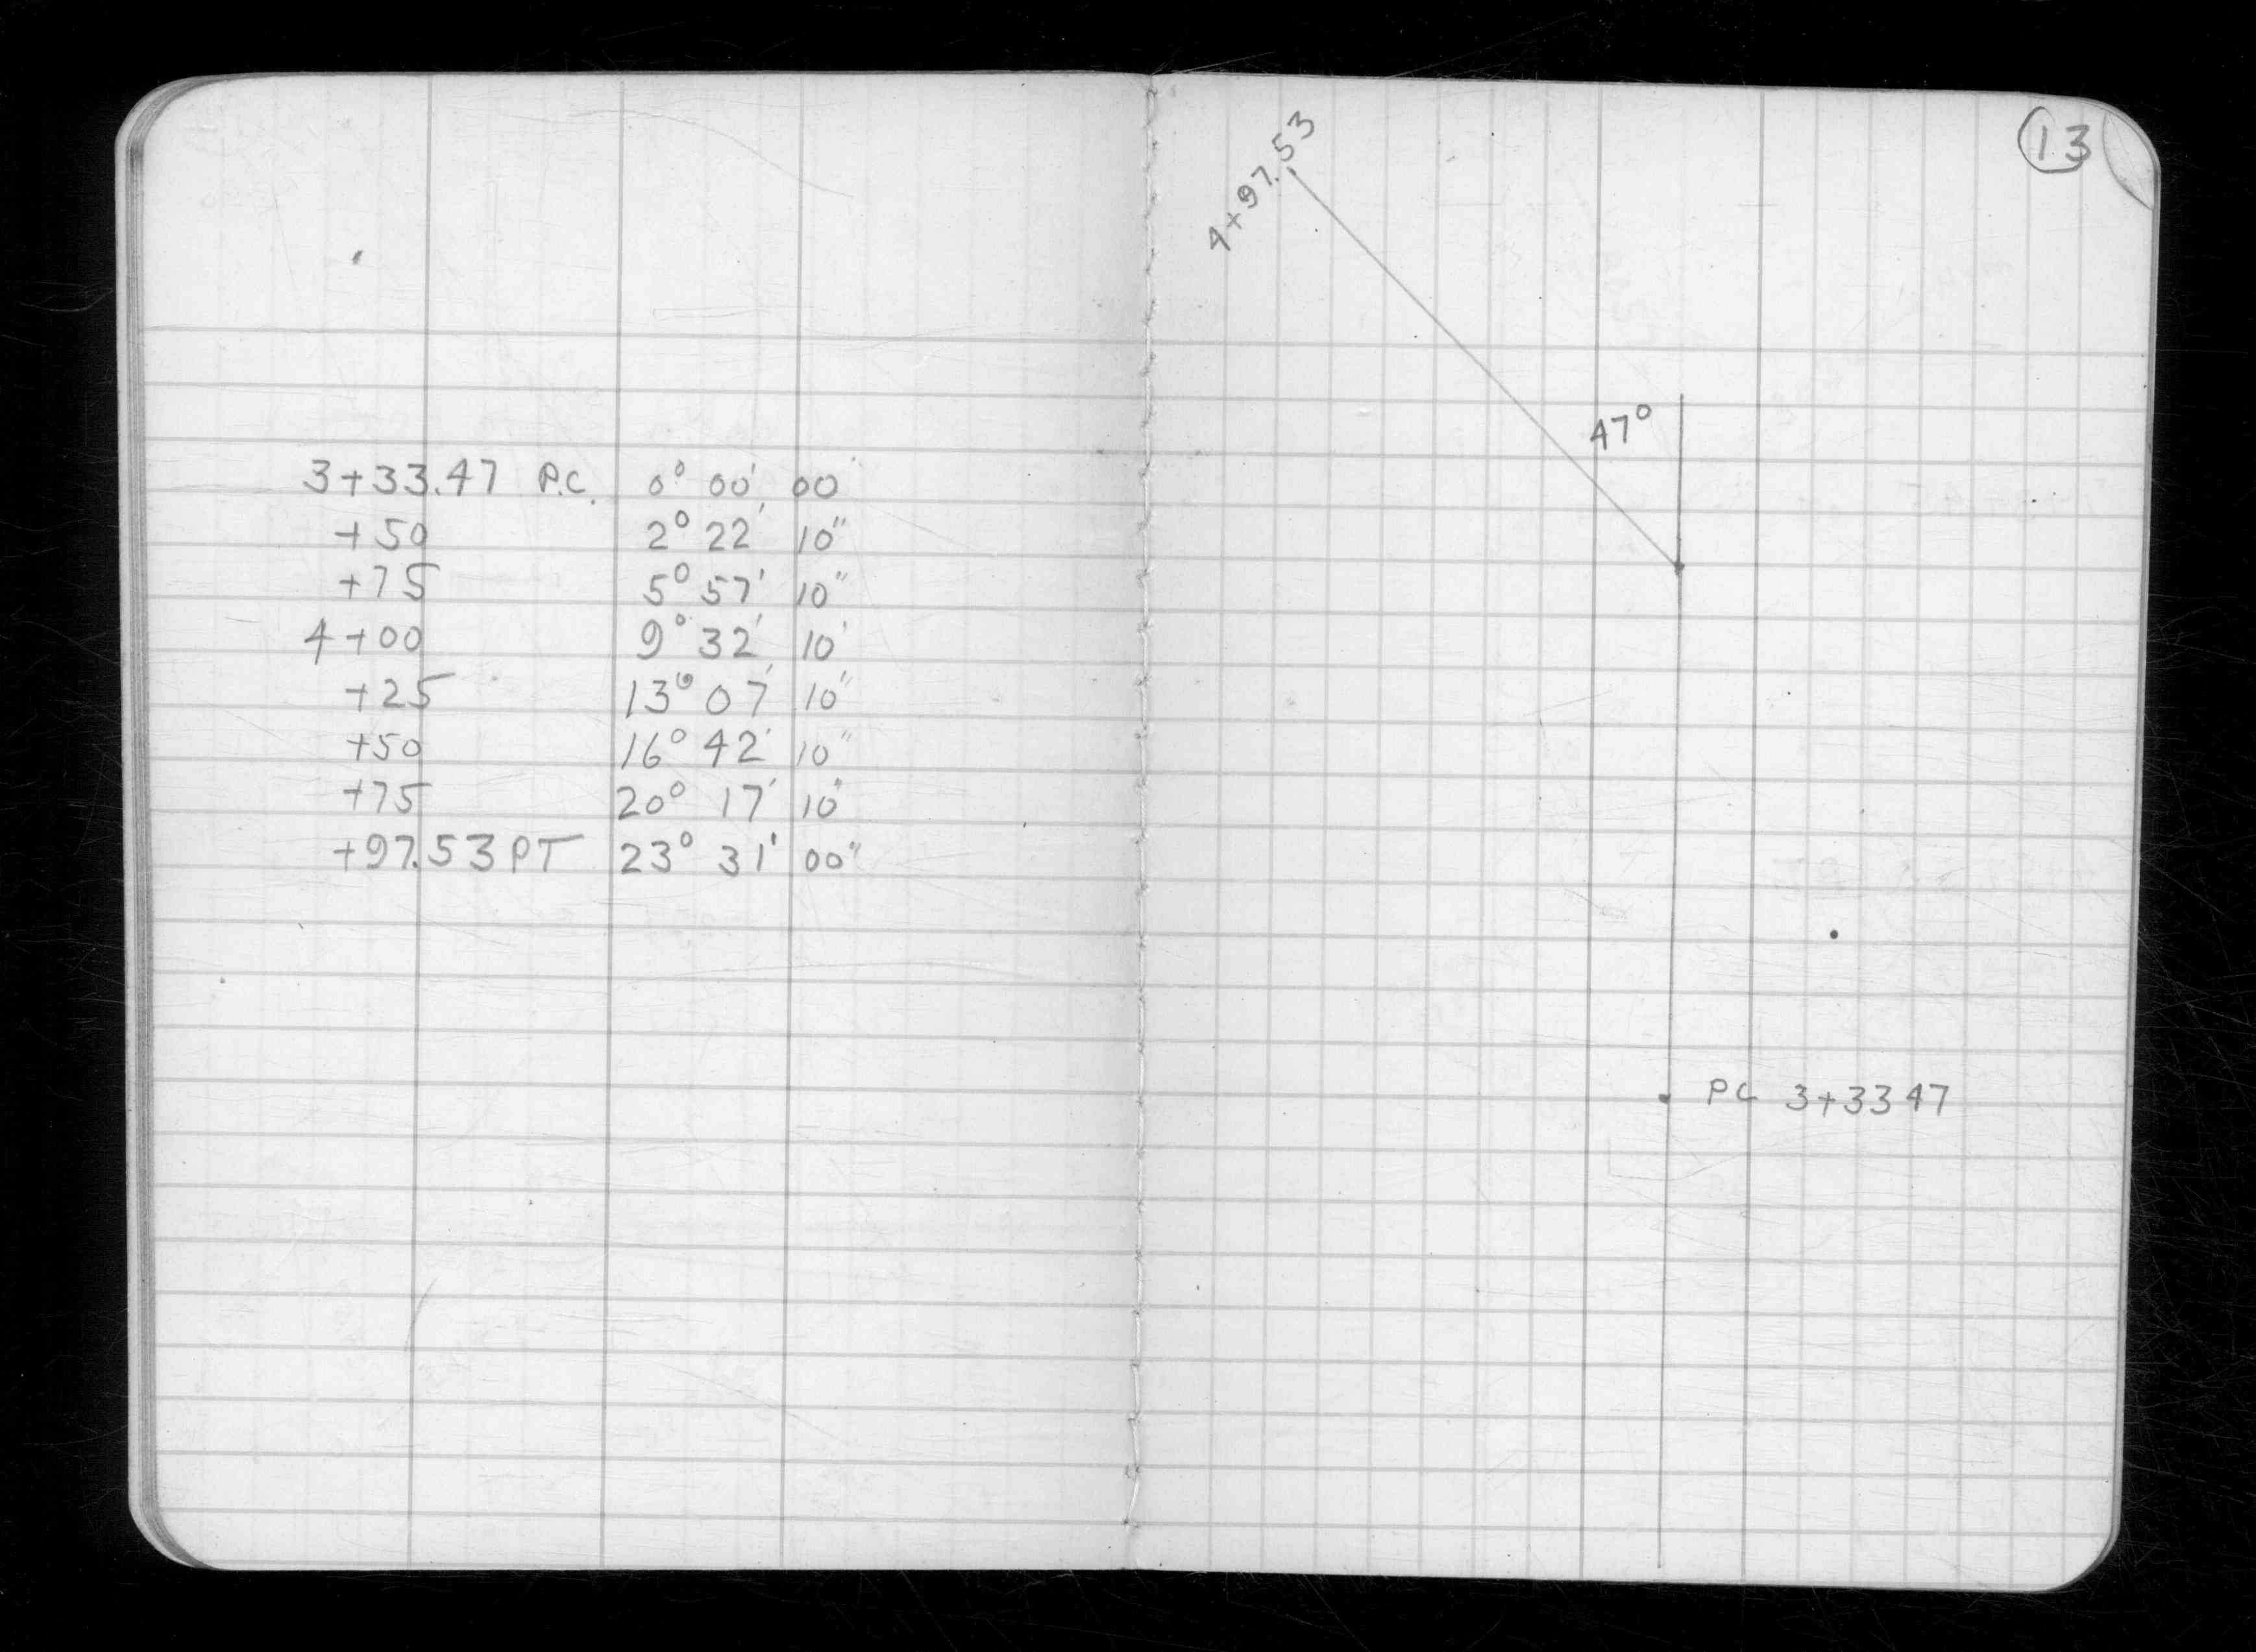 3+33.47 P.C. 0° 00' 00'
+50 2° 22' 10"
+75 5° 57' 10"
4+00 9° 32' 10'
+25 13° 07' 10"
+50 16° 42' 10"
+75 20° 17' 10"
+97.53 PT 23° 31' 00"
13
4+97.53
47°
PC 3+33 47